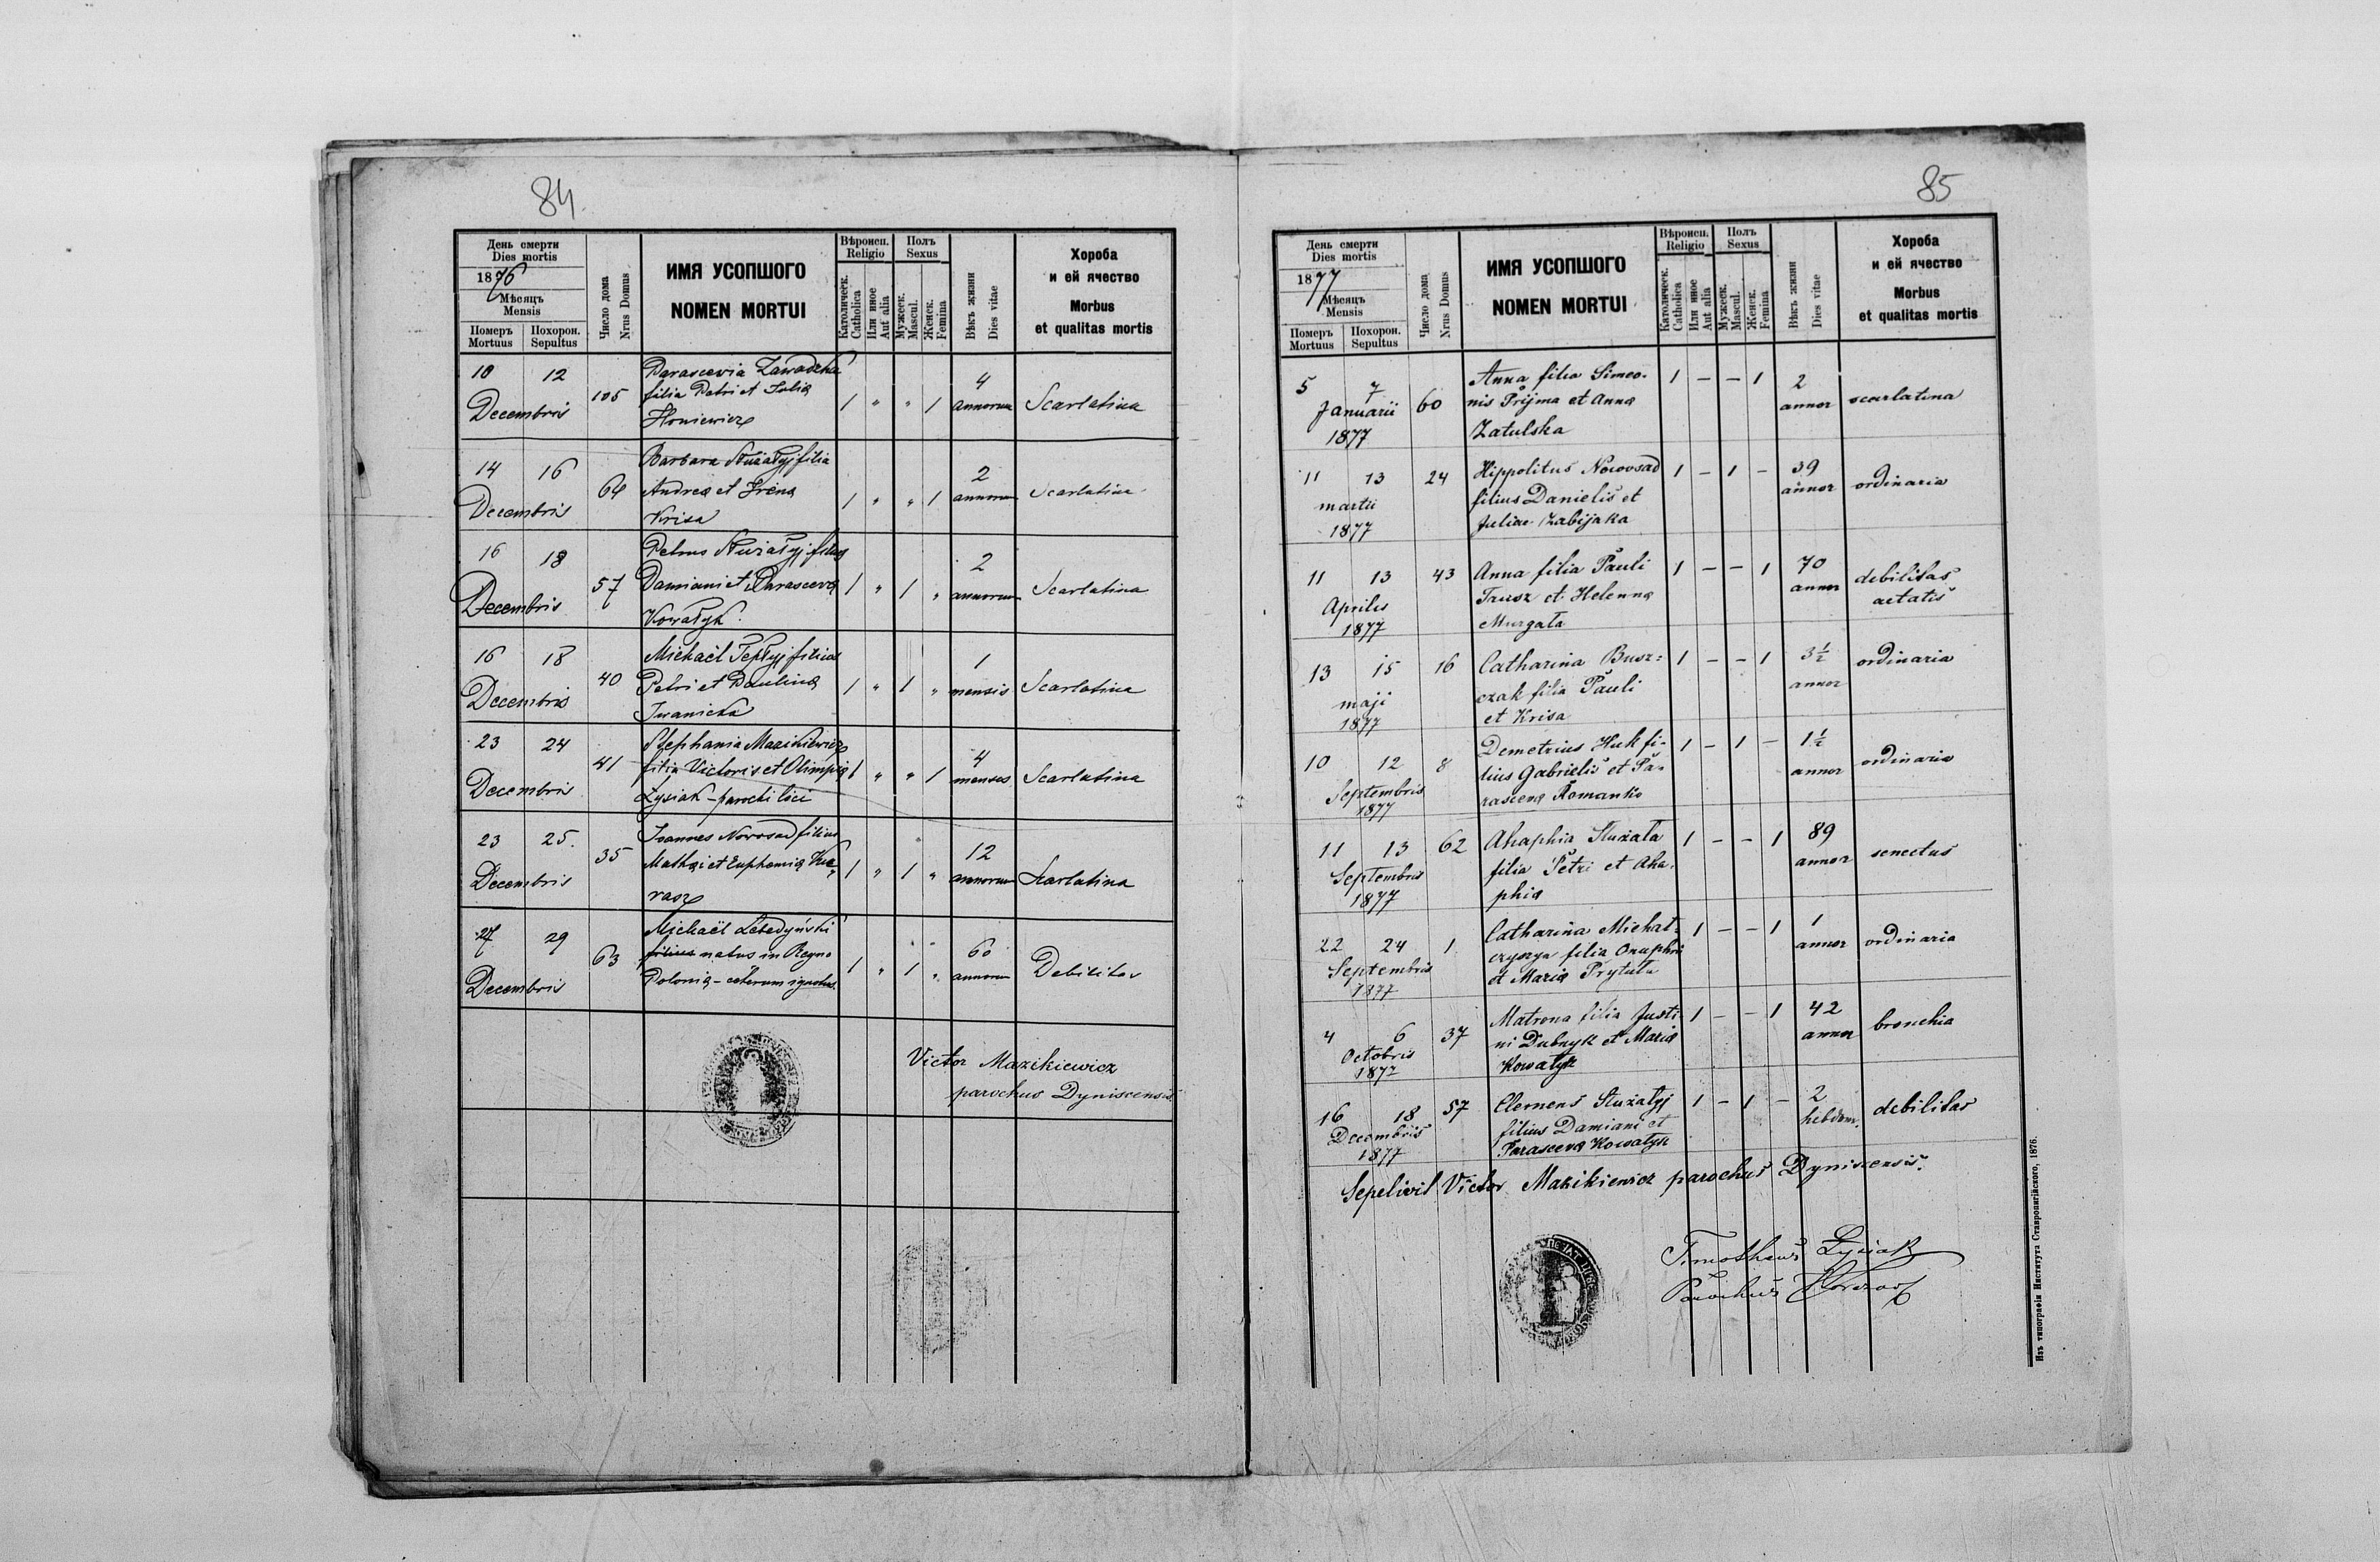 84.
День смерти
Dies mortis
1876
Мѣсяцъ
Mensis
Померъ
Mortuus
Похорон.
Sepultus
Число дома
Nrus Domus
ИМЯ УСОПШОГО
NOMEN MORTUI
Вѣроисп.
Religio
Католическ.
Catholica
Или иное
Aut alia
Полъ
Sexus
Мужеск.
Mascul.
Женск.
Femina
Вѣкъ жизни
Dies vitae
Хороба
и ей ячество
Morbus
et qualitas mortis
10 12 Decembris 105
Parascevia Zawadzka
filia Petri et Julia
Hroniewicz
1 " " 1 4 annorum Scarlatina
14 16 Decembris 64
Barbara Stużałyj filia
Andreæ et Irena
Krisa
1 " " 1 2 annorum Scarlatina
16 18 Decembris 57
Petrus Stużałyj filius
Damiani et Parasceva
Kowałyk.
1 " 1 " 2 annorum Scarlatina
16 18 Decembris 40
Michaël Tepłyj filius
Petri et Paulina
Iwanicka
1 " 1 " 1 mensis Scarlatina
23 24 Decembris 41
Stephania Mazikiewicz
filia Victoris et Olimpia
Łysiak - parochi loci
1 " " 1 4 menses Scarlatina
23 25. Decembris 35
Joannes Novosad filius
Mathæi et Euphemia
1 " 1 " 12 annorum Scarlatina
27 29 Decembris 63
Michaël Lebedyński
filius natus in Regno
Polonia - ceterum ignotus.
1 " 1 " 60 annorum Debilitas
Victor Mazikiewicz
parochus Dyniscensis
85
День смерти
Dies mortis
1877
Мѣсяцъ
Mensis
Померъ
Mortuus
Похорон.
Sepultus
Число дома
Nrus Domus
ИМЯ УСОПШОГО
NOMEN MORTUI
Вѣроисп.
Religio
Католическ.
Catholica
Или иное
Aut alia
Полъ
Sexus
Мужеск.
Mascul.
Женск.
Femina
Вѣкъ жизни
Dies vitae
Хороба
и ей ячество
Morbus
et qualitas mortis
5 7 Januarii 1877 60
Anna filia Simeo-
nis Prijma et Anna
Zatulska
1 – – 1 2 annor scarlatina
11 13 martii 1877 24
Hippolitus Nowosad
filius Danielis et
Juliae Zabijaka
1 – 1 – 39 annor ordinaria
11 13 Aprilis 1877 43
Anna filia Pauli
et Helenna
Murgała
1 – – 1 70 annor debilitas
aetatis
13 15 maji 1877 16
Catharina Busz=
czak filia Pauli
et Krisa
1 – – 1 3½ annor ordinaria
10 12 Septembris 1877 8
Demetrius Huk fi-
lius Gabrielis et Pa-
rasceva Romanko
1 – 1 – 1½ annor ordinaria
11 13 Septembris 1877 62
Ahaphia Stużała
filia Petri et Aha-
phia
1 – – 1 89 annor senectus
22 24 Septembris 1877 1
Catharina Michał-
czyszyn filia Onuphri
et Maria Prytuła
1 – – 1 1 annor ordinaria
4 6 Octobris 1877 37
Matrona filia Justi-
ni Dubnyk et Maria
Kowałyk
1 – – 1 42 annor bronchia
16 18 Decembris 1877 57
Clemens Stużałyj
filius Damiani et
Parasceva Kowałyk
1 – 1 – 2 hebdom. debilitas
Sepelivit Victor Mazikiewicz parochus Dyniscensis.
Timotheus Łysiak
Parochus
Изъ типографіи Института Ставропигійского, 1876.